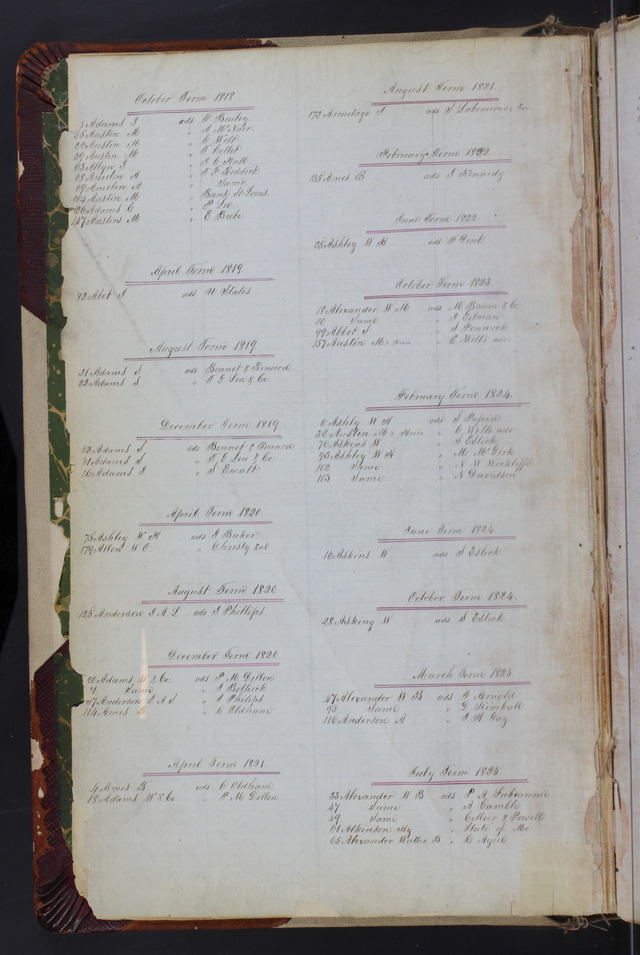 October Term 1818
Adams J ads Bailey
Austin M " A McNair
36 Austin M " C Wilt
39 Austin M " Collet
63 Allyn J " J C Hall
68 Amelin A " T F Riddick
69 Amelin A Same
104 Austin M " Bank St Louis
Adams C " P Lee
147 Austin M " E Bebe
April Term 1819
82 Abot J ads U States
August Term 1819
21 Adams J ads Bennet &
22 Adams J " T G Lea & Co
December Term 1819
Adams J ads Bennet &
Adams J " Lea & Co
26 Adams J " S Ewalt
April Term 1820
75 Ashley W H ads J Bieher
179 Allen W C " Christy
August Term 1820
125 Anderson J A L ads J Phillips
December Term 1820
20 Adams, W & Co ads P M Dillon
Same " Bostick
Anderson J A L " Philips
114 Ames B " C Oldham
April Term 1821
4 Ames B ads C Oldham
18 Adams W & Co " P M Dillon
August Term 1821
173 Armitage J ads L Labeaume &
February Term 1822
Ames B ads J Kennedy
June Term 1822
25 Ashley W H ads Dent
October Term 1823
18 Alexander W M ads M Baum & Co
20 Same " J Gilman
99 Abbot J " S Fenwick
157 Austin M's " C Wilts
February Term 1824
6 Ashley W H ads S Papin
52 Austin M's " C Wilts
76 Askins W " S Eslick
93 Ashley W H " M McGirk
102 Same " N W
103 Same " N Davidson
June Term 1824
16 Askins W ads S Eslick
October Term 1824
28 Asking W ads S Eslick
March Term 1825
47 Alexander W B ads G Arnold
93 Same " G Kimball
116 Anderson A " J H Gay
July Term 1825
33 Alexander W B ads P A Labeaume
47 Same " A Gamble
49 Same " Collier & Powell
61 Atkinson " State of Mo
65 Alexander Walter B "